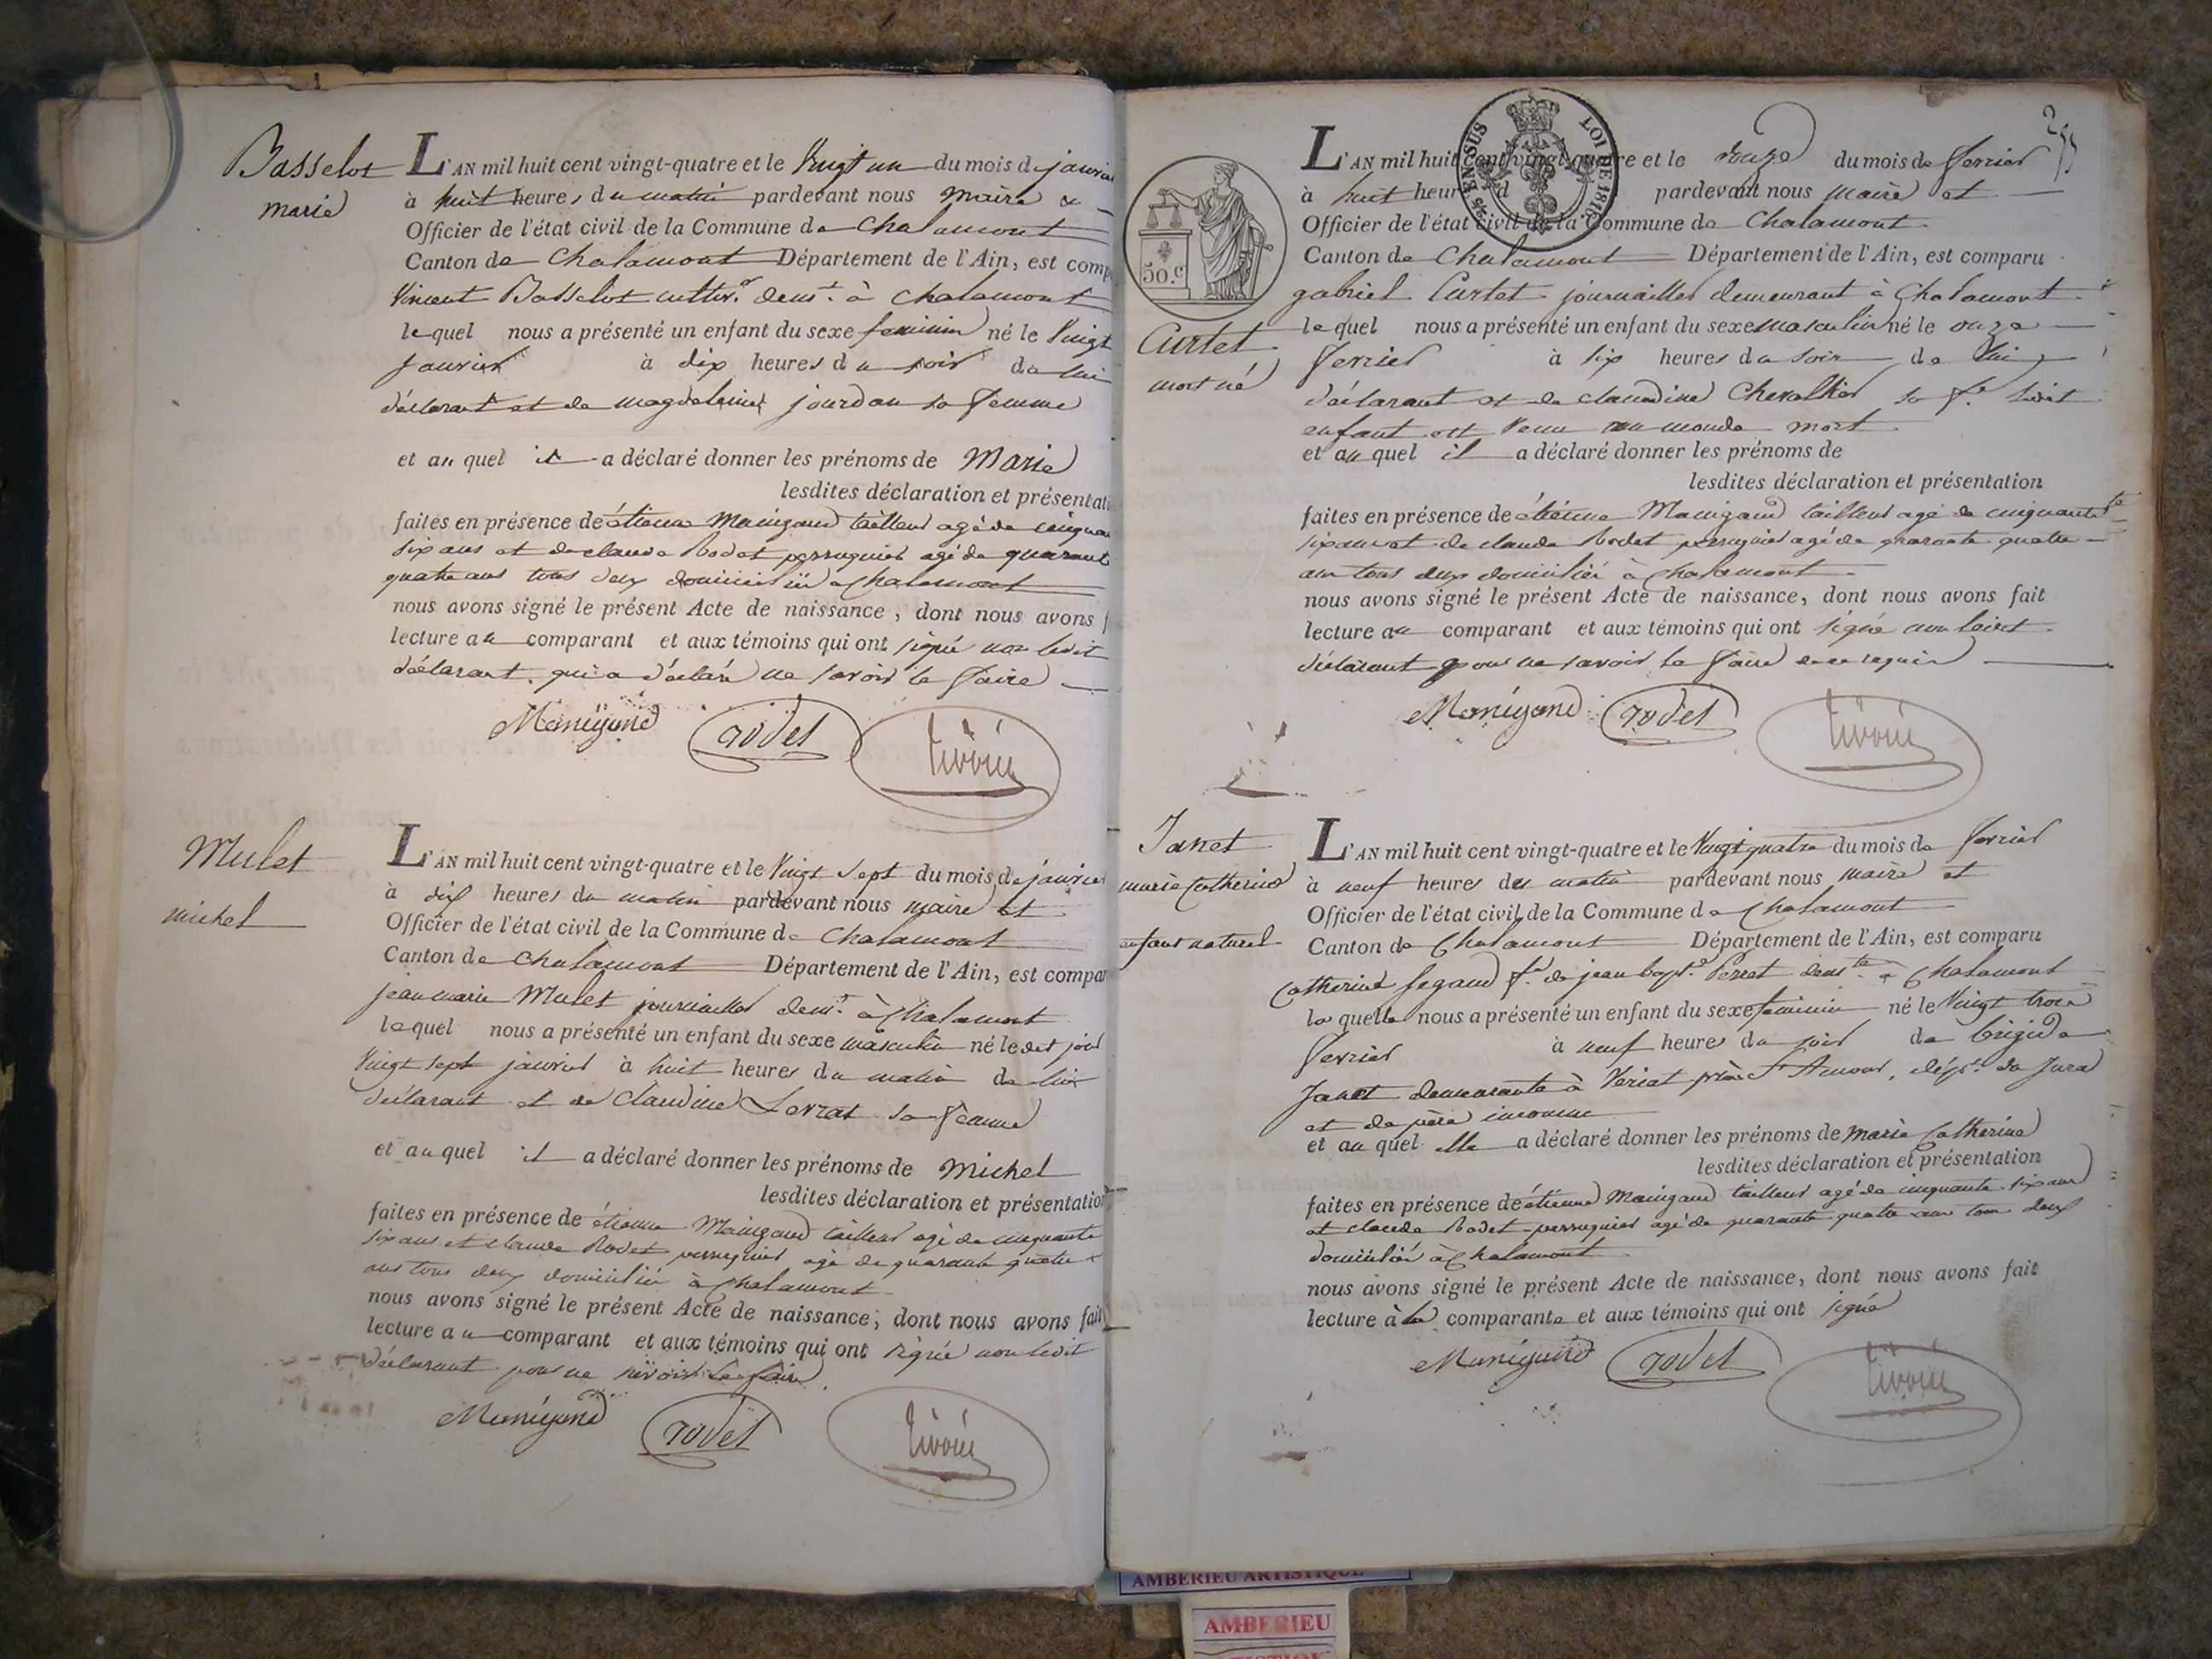 Basselot
marie
L'AN mil huit cent vingt-quatre et le Vingt un du mois de janvier
à huit heures du matin pardevant nous maire &
Officier de l'état civil de la Commune de Chalamont
Canton de Chalamont Département de l'Ain, est comp
Vincent Basselot cultivr. demt. à Chalamont
lequel nous a présenté un enfant du sexe feminin né le Vingt
Janvier à dix heures du soir de lui
déclarant et de magdeleine jourdan sa femme
et au quel il a déclaré donner les prénoms de Marie
lesdites déclaration et présentati
faites en présence de étienne Manigand tailleur agé de cinquan
six ans et de claude Rodet perruquier agé de quarante
quatre ans tous deux domiciliés à Chalamont
nous avons signé le présent Acte de naissance, dont nous avons f
lecture au comparant et aux témoins qui ont signé non ledit
déclarant qui a déclaré ne savoir le faire
Manigand rodet
Mulet
michel
L'AN mil huit cent vingt-quatre et le Vingt Sept du mois de janvier
à dix heures du matin pardevant nous maire et
Officier de l'état civil de la Commune de Chalamont
Canton de Chalamont Département de l'Ain, est compar
jean marie Mulet journailler demt. à Chalamont
lequel nous a présenté un enfant du sexe masculin né le dit jour
Vingt sept janvier à huit heures du matin de lui
déclarant et de Claudine Lorrat sa femme
et au quel il a déclaré donner les prénoms de Michel
lesdites déclaration et présentation
faites en présence de étienne Manigand tailleur agé de cinquante
six ans et claude Rodet perruquier agé de quarante quatre
ans tous deux domiciliés à Chalamont
nous avons signé le présent Acte de naissance, dont nous avons fait
lecture au comparant et aux témoins qui ont signé non ledit
déclarant pour ne savoir le faire
Manigand rodet
50.c
EN SUS LOI DE 1816
Curtet
mort né
L'AN mil huit cent vingt-quatre et le douze du mois de fevrier
à huit heur d pardevant nous maire et
Officier de l'état civil de la Commune de Chalamont
Canton de Chalamont Département de l'Ain, est comparu
gabriel Curtet journailler demeurant à Chalamont
lequel nous a présenté un enfant du sexe masculin né le onze
fevrier à six heures du soir de lui
déclarant et de claudine Chevallier sa fe. ledit
enfant est venu au monde mort
et au quel il a déclaré donner les prénoms de
lesdites déclaration et présentation
faites en présence de étienne Manigand tailleur agé de cinquante
six ans et de claude Rodet perruquier agé de quarante quatre
ans tous deux domiciliés à Chalamont
nous avons signé le présent Acte de naissance, dont nous avons fait
lecture au comparant et aux témoins qui ont signé non ledit
déclarant pour ne savoir le faire de ce requis
Manigand rodet
Janet
marie Catherine
enfant naturel
L'AN mil huit cent vingt-quatre et le Vingt quatre du mois de fevrier
à neuf heures du matin pardevant nous maire et
Officier de l'état civil de la Commune de Chalamont
Canton de Chalamont Département de l'Ain, est comparu
Catherine Segaud fe. de jean bapt.e Perret demte. à Chalamont
laquelle nous a présenté un enfant du sexe feminin né le Vingt trois
fevrier à neuf heures du soir de brigide
Janet demeurante à Veriat près St Amour, dépt. du Jura
et de père inconnu
et au quel elle a déclaré donner les prénoms de Marie Catherine
lesdites déclaration et présentation
faites en présence de étienne Manigand tailleur agé de cinquante six ans
et claude Rodet perruquier agé de quarante quatre ans tous deux
domiciliés à Chalamont
nous avons signé le présent Acte de naissance, dont nous avons fait
lecture à la comparante et aux témoins qui ont signé
Manigand rodet
AMBERIEU ARTISTIQUE
AMBERIEU